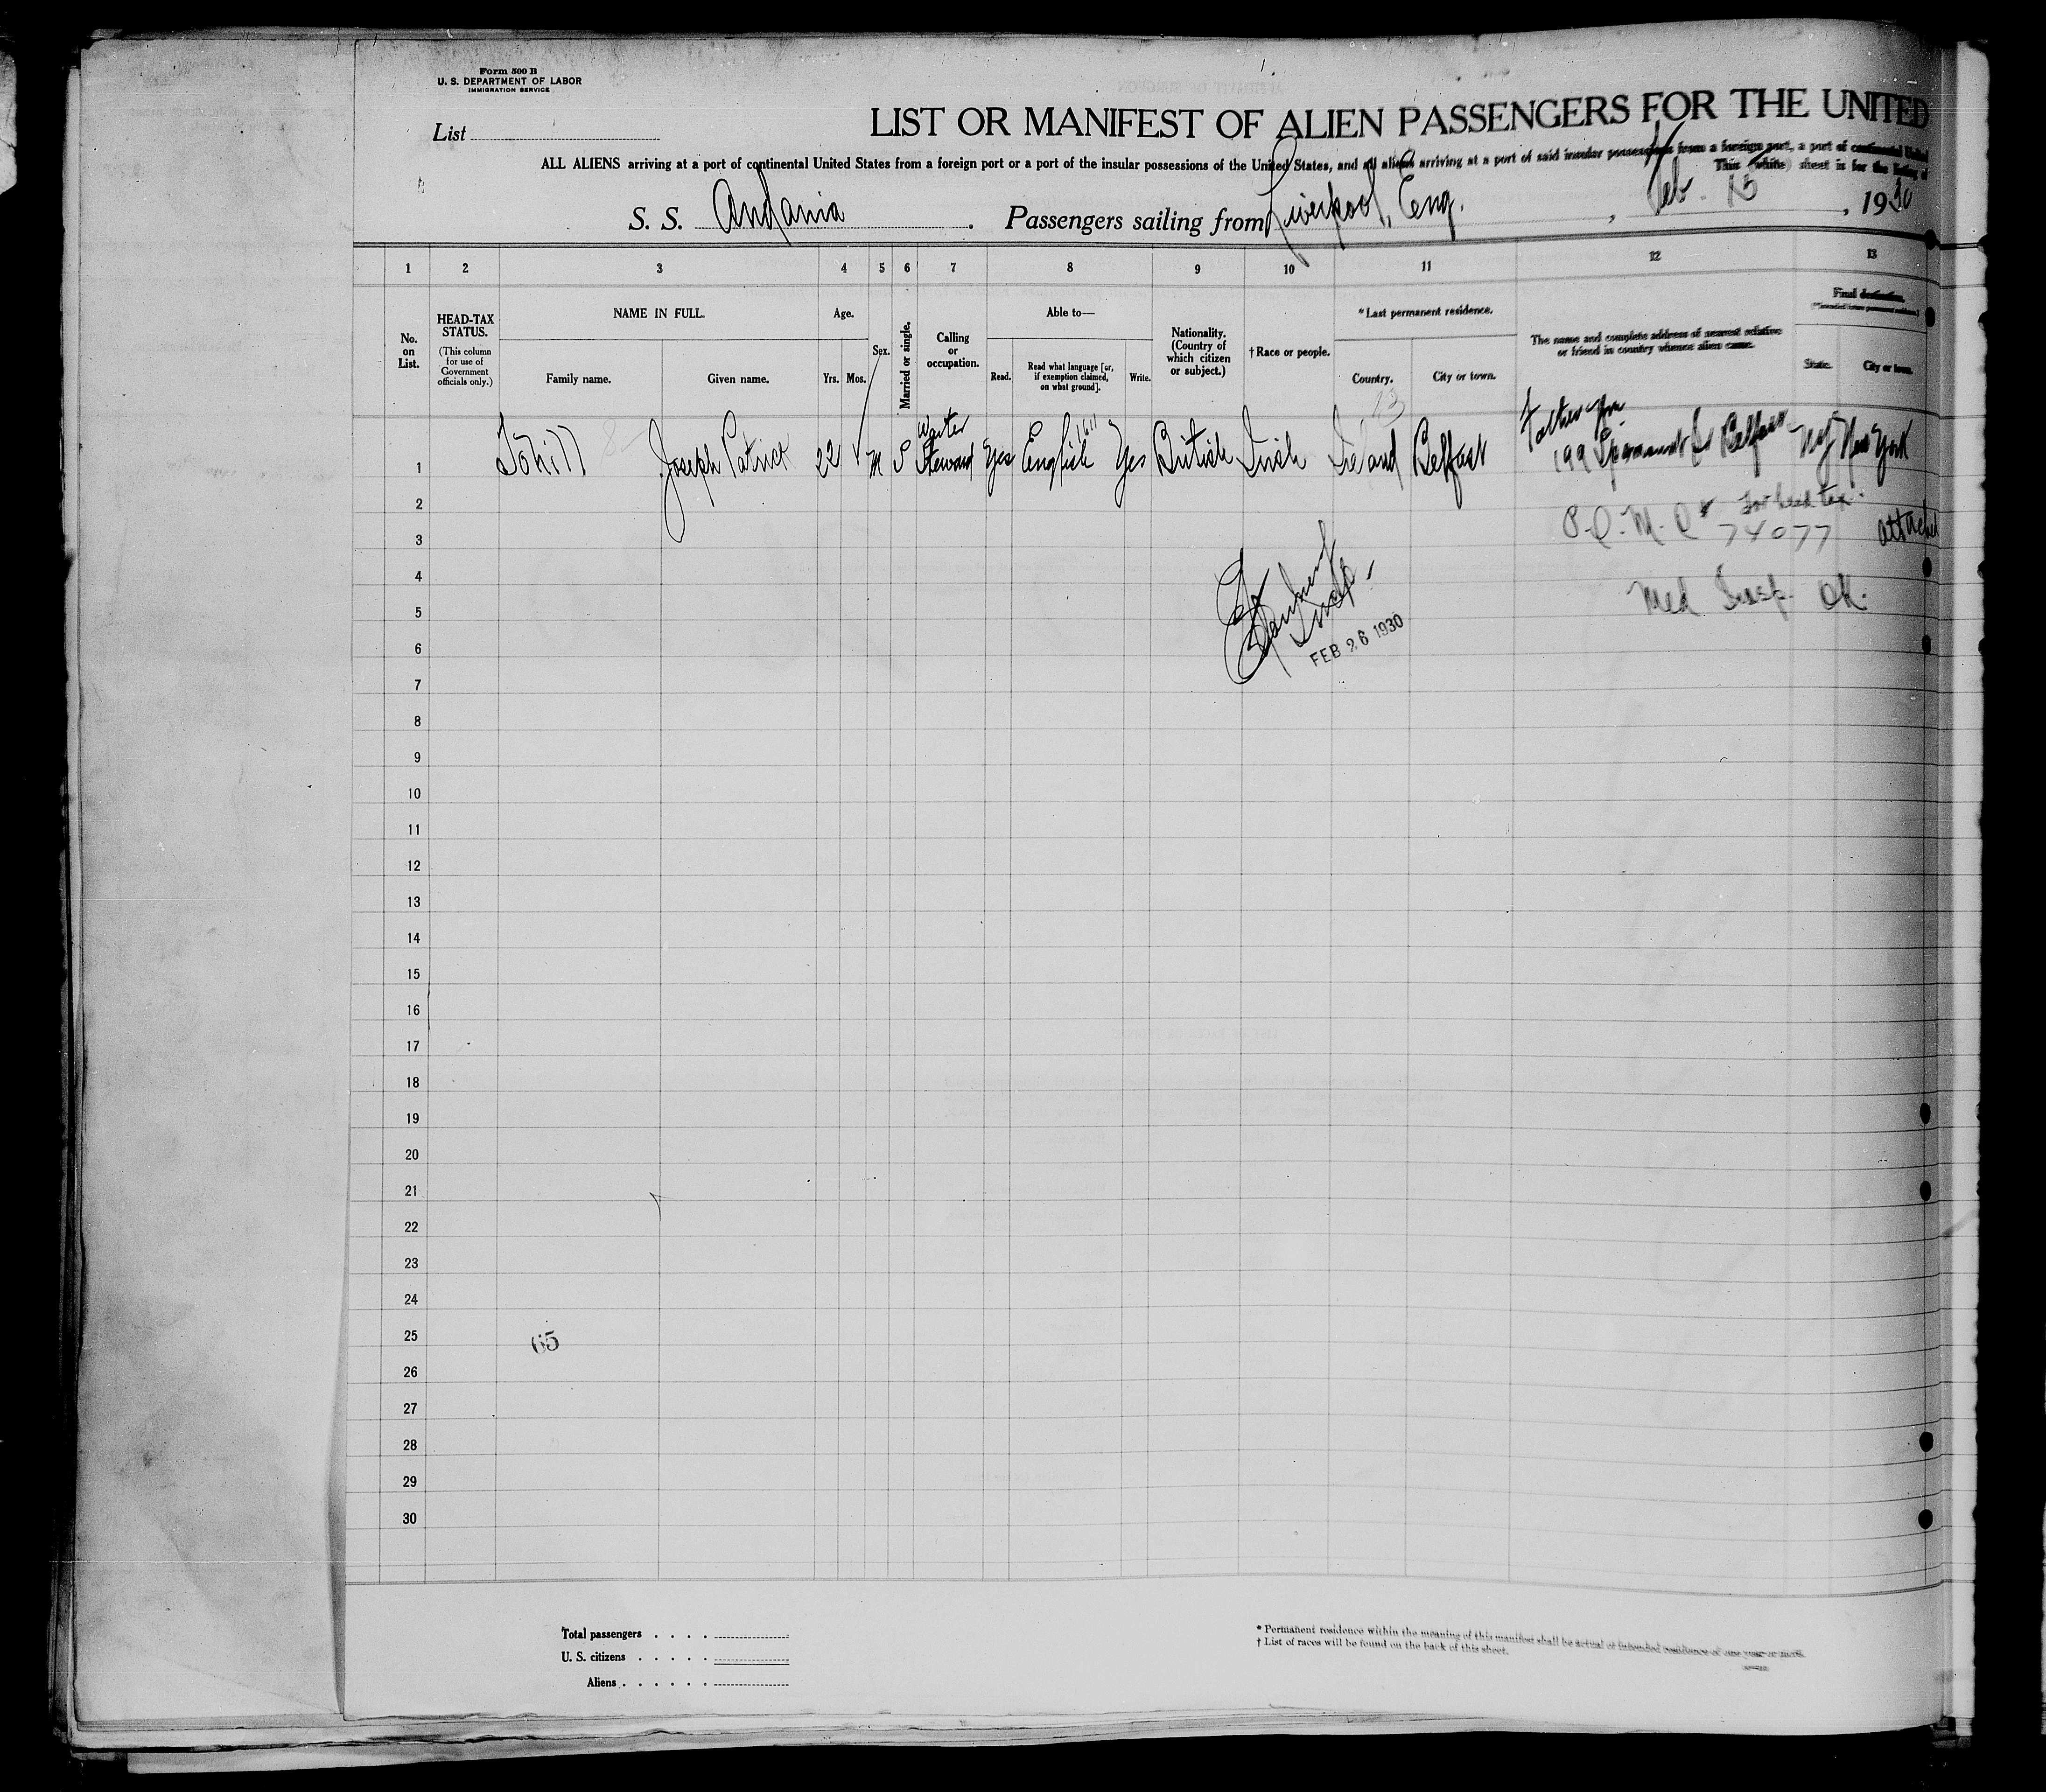 Form 500 B
U. S. DEPARTMENT OF LABOR
IMMIGRATION SERVICE
List
LIST OR MANIFEST OF ALIEN PASSENGERS FOR THE UNITED
ALL ALIENS arriving at a port of continental United States from a foreign port or a part of the insular possessions of the United States, and all aliens arriving at a port of said insular possessions from a foreign port, a port of continental United
This (white) sheet is for the listing of
S. S. Andania. Passengers sailing from Liverpool, Eng., Feb. 15, 1930
1 2 3 4 5 6 7 8 9 10 11 12 13
No. on List.
HEAD-TAX STATUS.
(This column for use of Government officials only.)
NAME IN FULL.
Family name.
Given name.
Age.
Yrs. Mos.
Sex.
Married or single.
Calling or occupation.
Able to—
Read.
Read what language [or, if exemption claimed, on what ground].
Write.
Nationality. (Country of which citizen or subject.)
† Race or people.
* Last permanent residence.
Country.
City or town.
The name and complete address of nearest relative or friend in country whence alien came.
Final destination.
State.
City or town.
1 Tohill Joseph Patrick 22 M S Waiter Steward Yes English Yes British Irish Ireland Belfast Father 199 Belfast NY New York
2 for head tax.
3 74077 attached
4
5 Med Insp. OK.
6 FEB 26 1930
7
8
9
10
11
12
13
14
15
16
17
18
19
20
21
22
23
24
25 65
26
27
28
29
30
Total passengers . . . .
U. S. citizens . . . . .
Aliens . . . . . .
* Permanent residence within the meaning of this manifest shall be actual or intended residence of one year or more.
† List of races will be found on the back of this sheet.